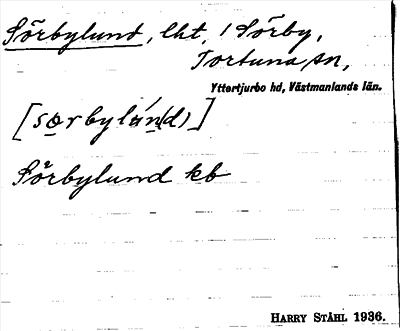 Sörbylund, lht, i Sörby,
Tortuna sn,
Yttertjurbo hd, Västmanlands län.
[sœrbylún(d)]
Sörbylund kb
HARRY STÅHL 1936.